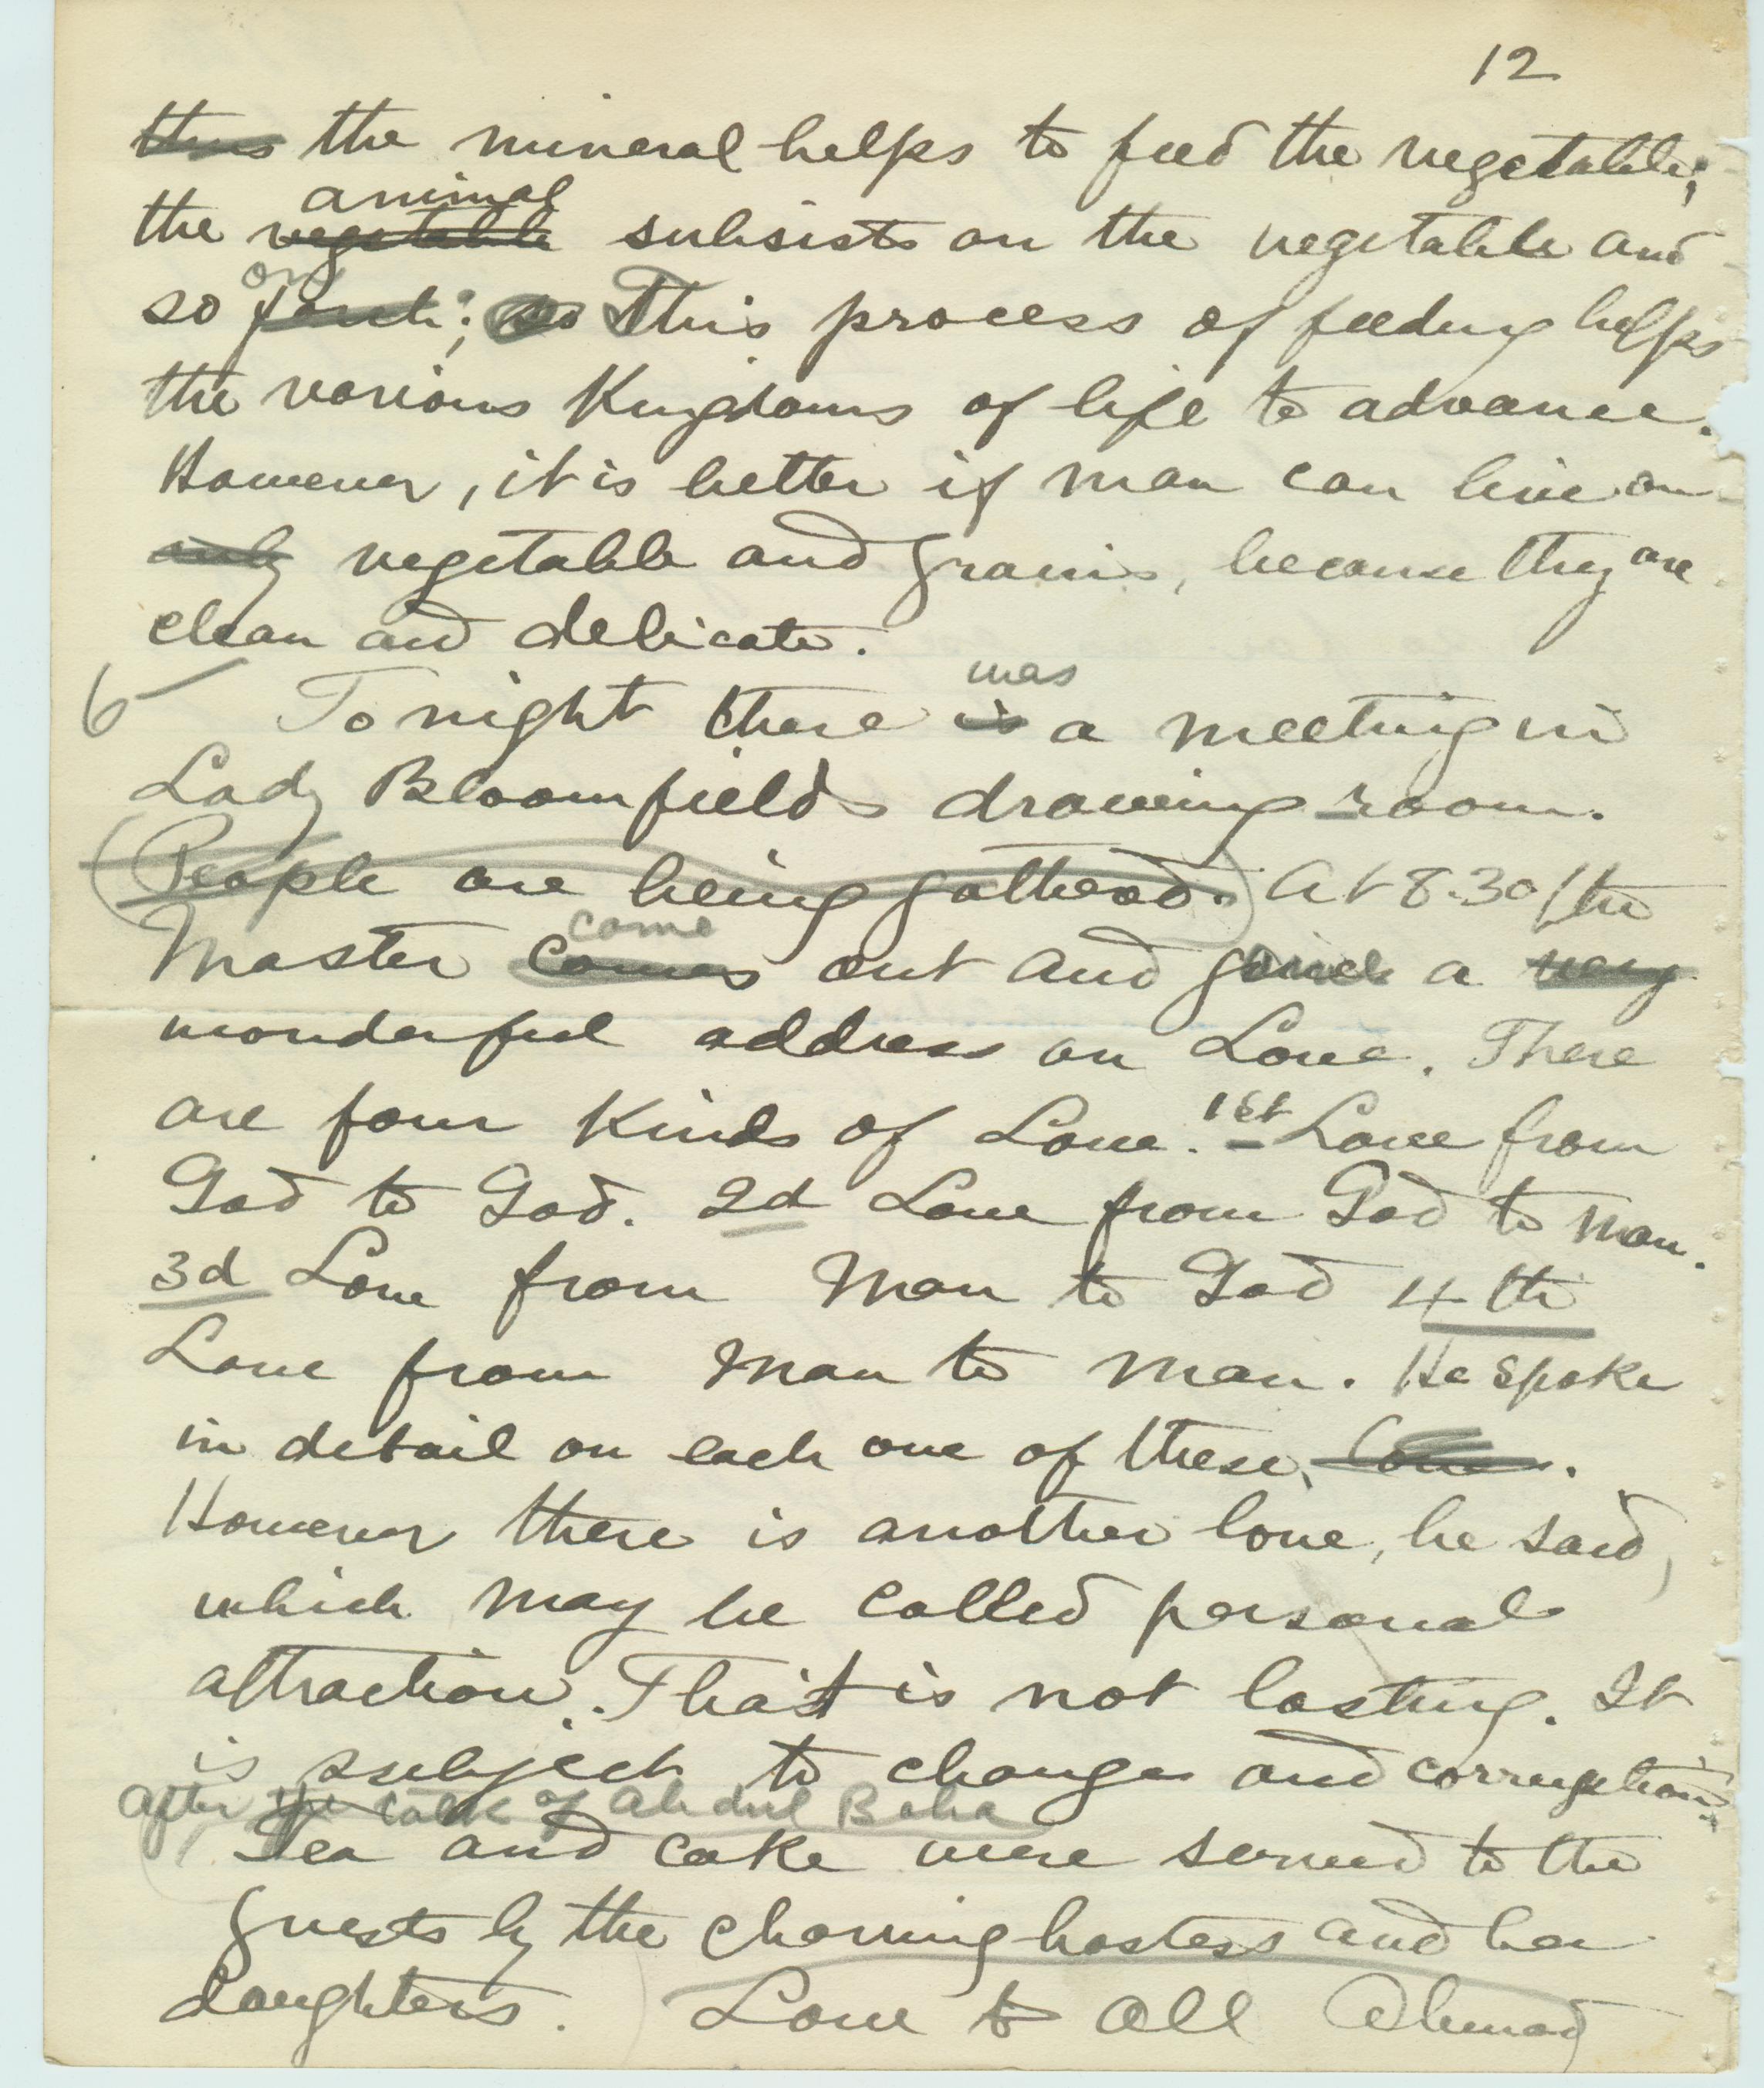 12
thus the mineral helps to feed the vegetable;
animal
the vegetable subsists on the vegetable and
on
so forth; so This process of feeding helps
the various Kingdoms of life to advance.
However, it is better if man can live on
only vegetable and grains, because they are
clean and delicate.
was
6 Tonight there is a meeting in
Lady Bloomfields drawing-room.
(People are being gathered.) At 8.30/the
came
Master comes out and gave a very
wonderful address on Love. There
are four Kinds of Love. 1st Love from
God to God. 2d Love from God to man.
3d Love from Man to God 4th
Love from Man to man. He spoke
in detail on each one of these, love.
However there is another love, he said,
which may be called personal
attraction. That is not lasting. It
is subject to change and corruption.
After the talk of Abdul Baha
Tea and cake were served to the
guests by the charming hostess and her
daughters. Love to all Ahmad